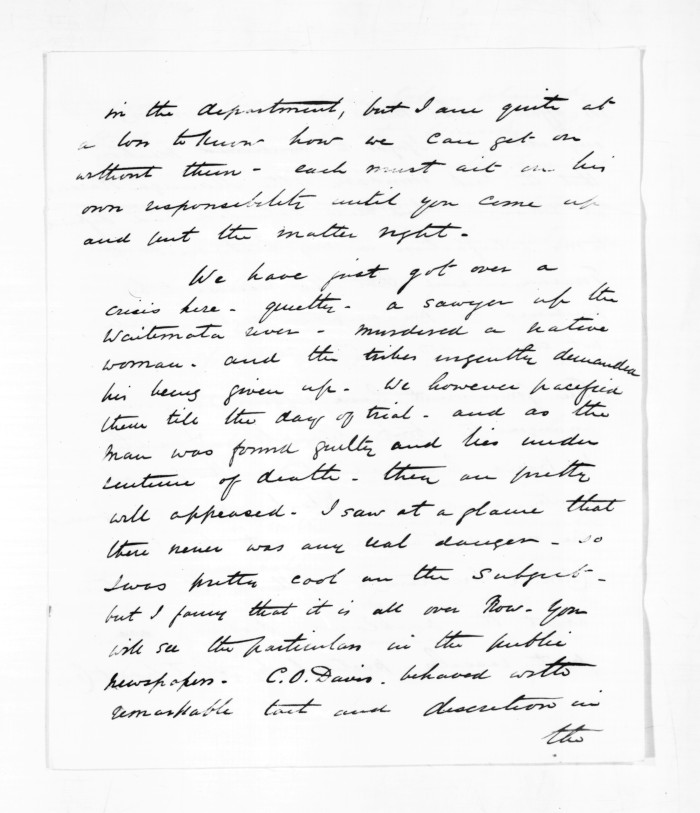 in the department, but I am quite at
a loss to know how we can get on
without them - each must act on his
own responsibility until you come up
and put the matter right -
We have just got over a
crisis here - quietly - a sawyer up the
Waitemata river - murdered a native
woman - and the tribes urgently demanded
his being given up - We however pacified
them till the day of trial - and as the
man was found guilty and lies under
sentence of death - they are pretty
well appeased - I saw at a glance that
there never was any real danger - so
I was pretty cool on the subject -
but I fancy that it is all over now - You
will see the particulars in the public
newspapers - C.O. Davis - behaved with
remarkable tact and discretion in
the